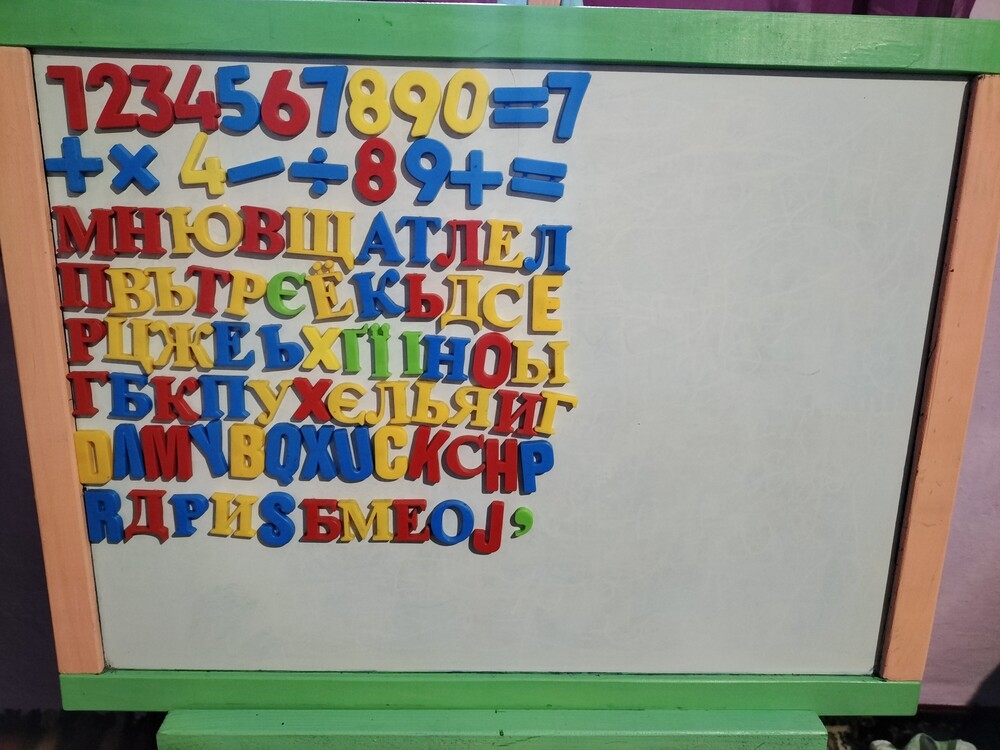 1234567890=7
+× 4−÷89+=
МНЮВЩАТЛЕЛ
ПВЬТРЄЁКЬДСЕ
РЦЖЕЬХГЇІНОЫ
ГБКПУХЄЛЬЯИГ
DΛMYBQXUCKCHP
RДРИSБМЕОJ,